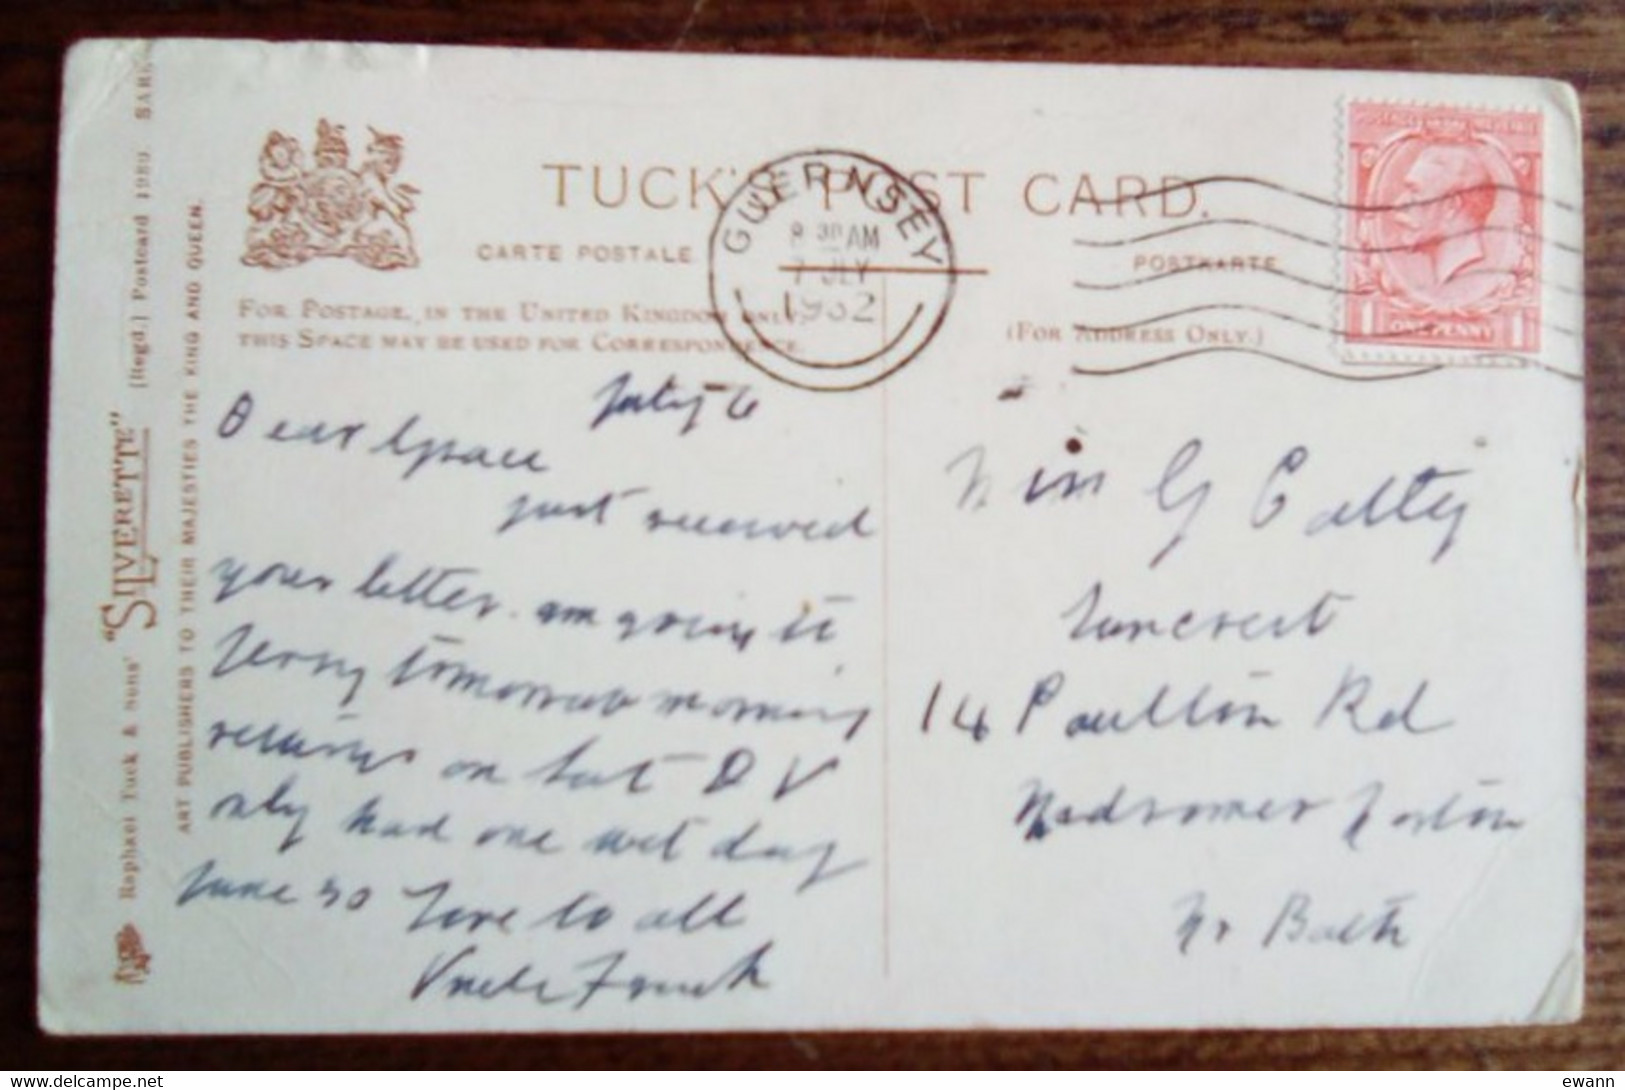 TUCK'S POST CARD.
CARTE POSTALE
POSTKARTE
FOR POSTAGE, IN THE UNITED KINGDOM ONLY,
THIS SPACE MAY BE USED FOR CORRESPONDENCE.
(FOR ADDRESS ONLY.)
GUERNSEY
8 30 AM
7 JLY
1932
1 ONE PENNY 1
Raphael Tuck & Sons' "SILVERETTE" (Regd.) Postcard 1989 SARK
ART PUBLISHERS TO THEIR MAJESTIES THE KING AND QUEEN.
July 6
Dear Grace
just received
your letter. am going to
Jersey tomorrow morning
returning on Sat D V
only had one wet day
June 30 Love to all
Uncle Frank
Miss G
14 Paulton Rd
Midsomer Norton
Nr Bath
ewann